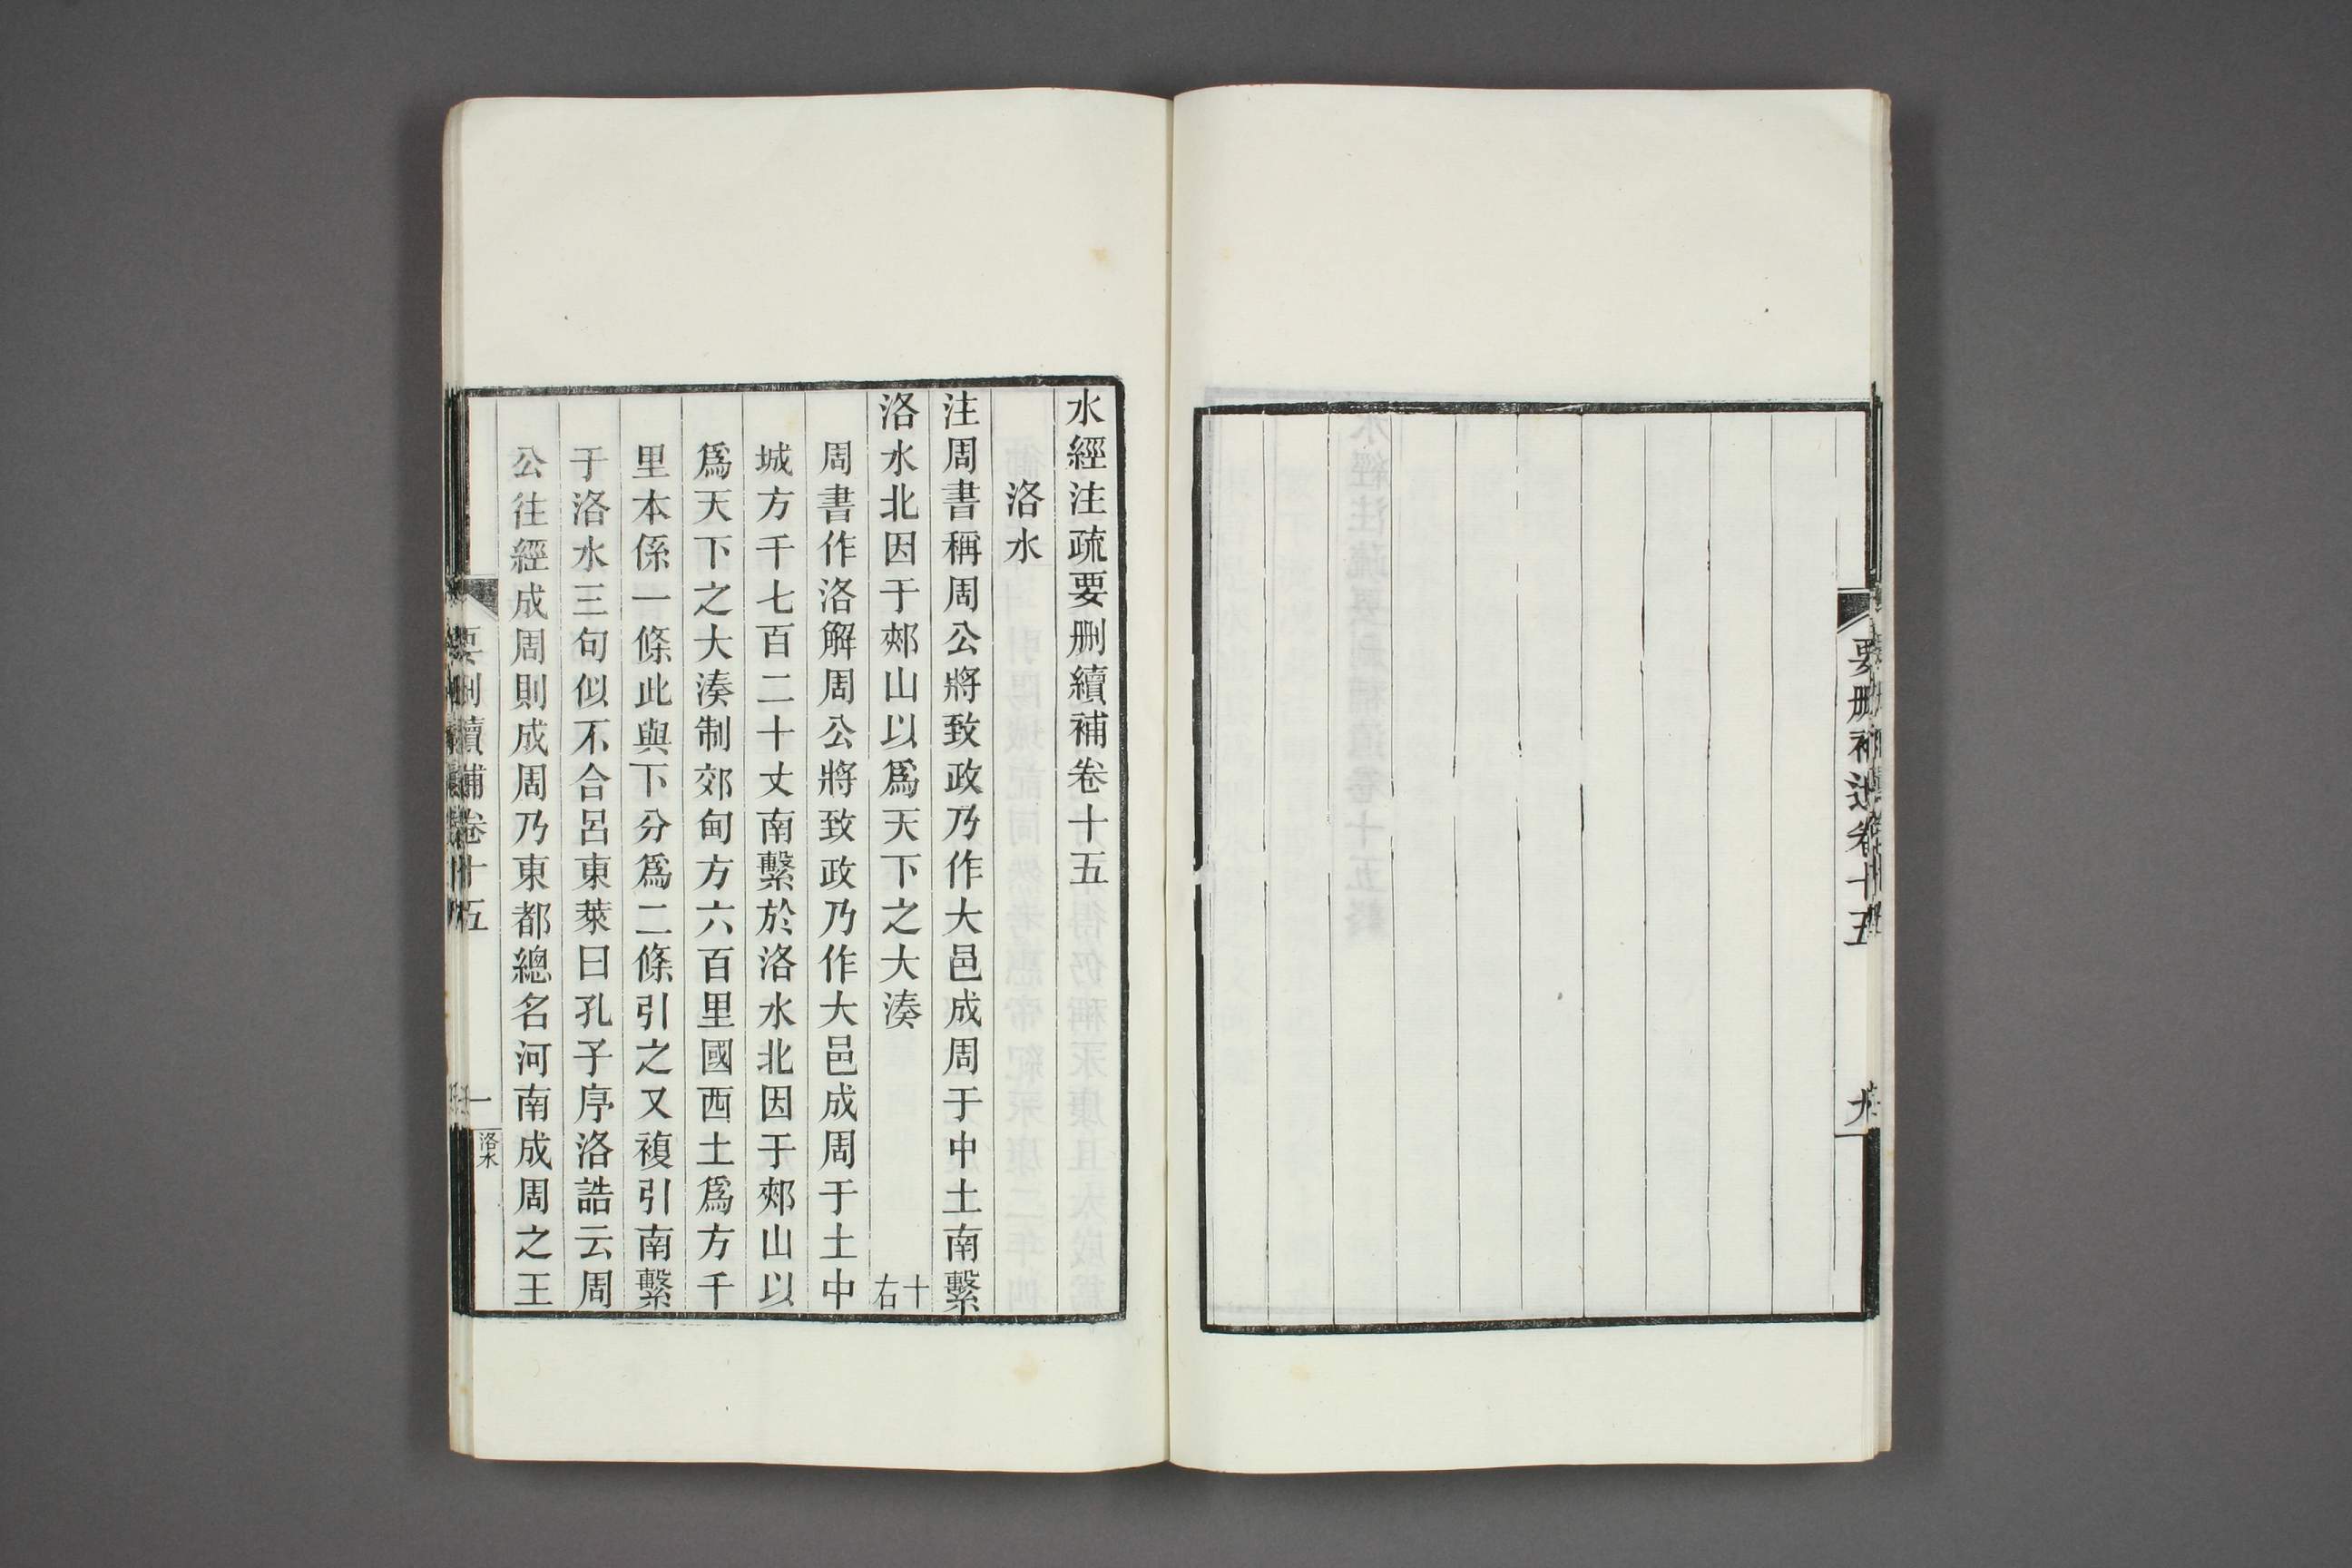 要刪補遺卷十五
水經注疏要刪續補卷十五
洛水
注周書稱周公將致政乃作大邑成周于中土南繫
洛水北因于郟山以爲天下之大湊 十右
周書作洛解周公將致政乃作大邑成周于土中
城方千七百二十丈南繫於洛水北因于郟山以
爲天下之大湊制郊甸方六百里國西土爲方千
里本係一條此與下分爲二條引之又複引南繫
于洛水三句似不合呂東萊曰孔子序洛誥云周
公往經成周則成周乃東都總名河南成周之王
要刪續補卷十五
一
洛水